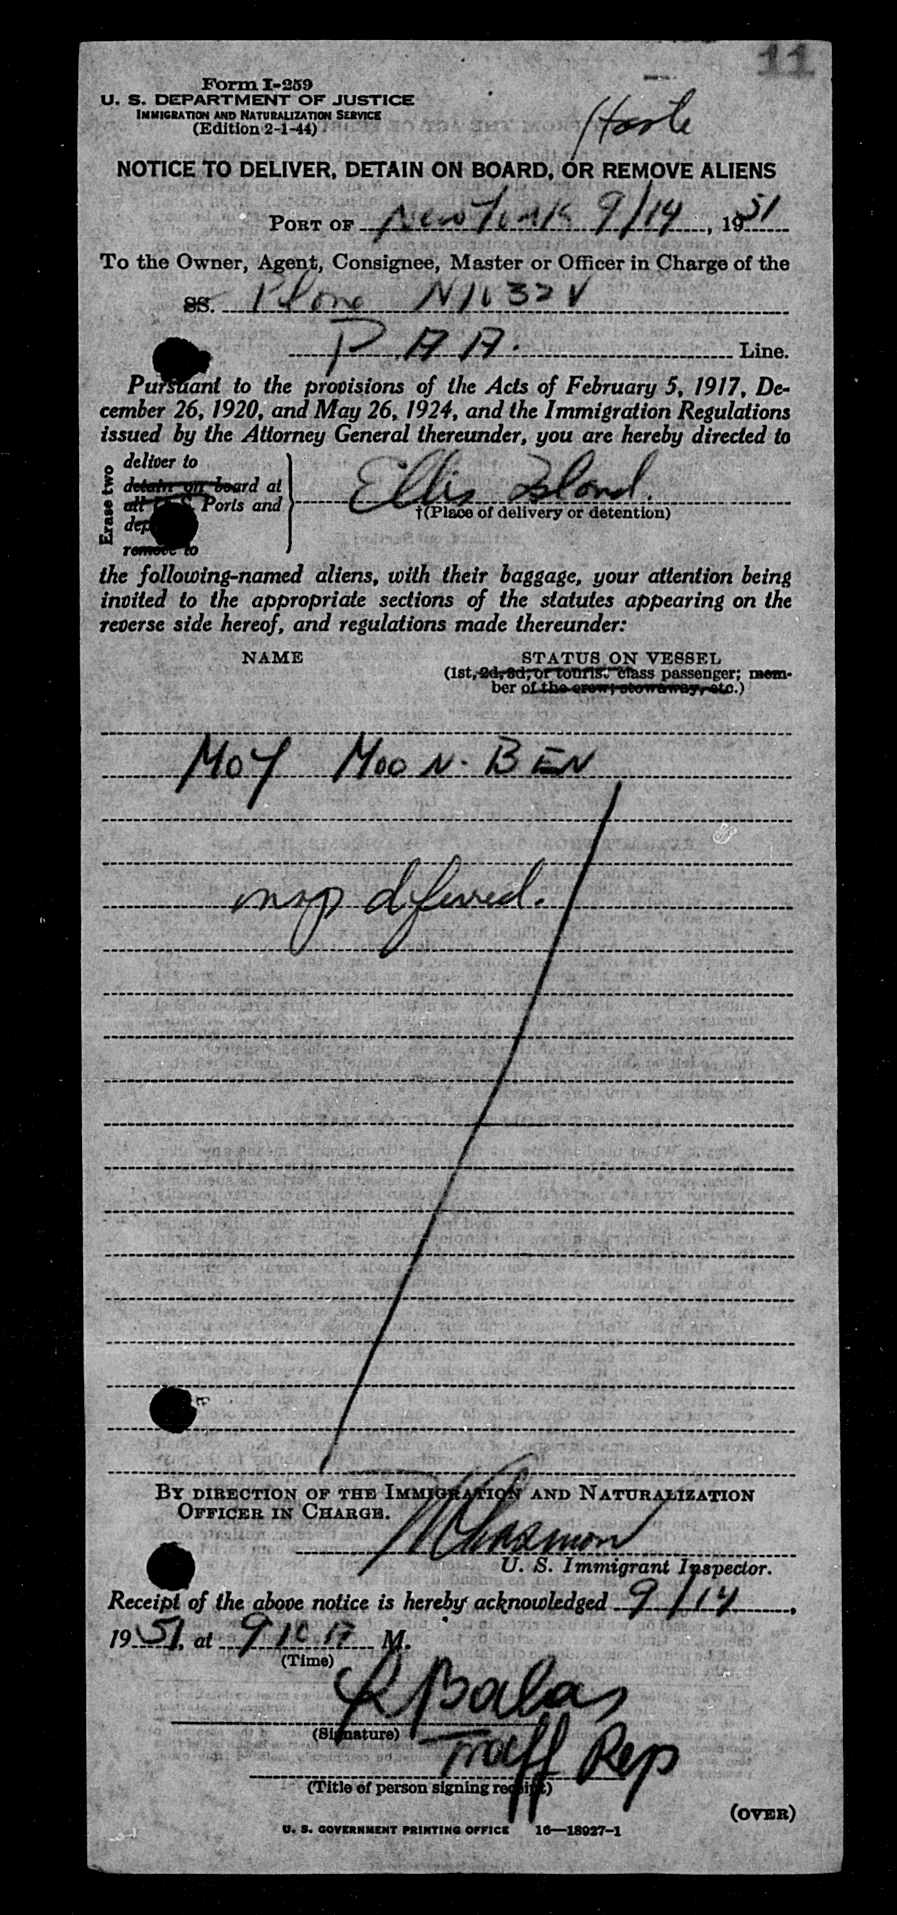 11
Form I-259
U. S. DEPARTMENT OF JUSTICE
IMMIGRATION AND NATURALIZATION SERVICE
(Edition 2-1-44)
NOTICE TO DELIVER, DETAIN ON BOARD, OR REMOVE ALIENS
PORT OF New York 9/14, 1951
To the Owner, Agent, Consignee, Master or Officer in Charge of the
SS. Plane N1032V
P.A.A. Line.
Pursuant to the provisions of the Acts of February 5, 1917, De-
cember 26, 1920, and May 26, 1924, and the Immigration Regulations
issued by the Attorney General thereunder, you are hereby directed to
Erase two
deliver to
detain on board at
all U.S. Ports and
remove to
Ellis Island.
†(Place of delivery or detention)
the following-named aliens, with their baggage, your attention being
invited to the appropriate sections of the statutes appearing on the
reverse side hereof, and regulations made thereunder:
NAME
STATUS ON VESSEL
(1st, 2d, 3d, or tourist class passenger; mem-
ber of the crew; stowaway, etc.)
MOY MOON. BEN
insp deferred.
BY DIRECTION OF THE IMMIGRATION AND NATURALIZATION
OFFICER IN CHARGE.
U. S. Immigrant Inspector.
Receipt of the above notice is hereby acknowledged 9/14,
1951, at 910 A M.
(Time)
Balas
(Signature)
Traff Rep
(Title of person signing receipt)
(OVER)
U. S. GOVERNMENT PRINTING OFFICE 16—18927-1